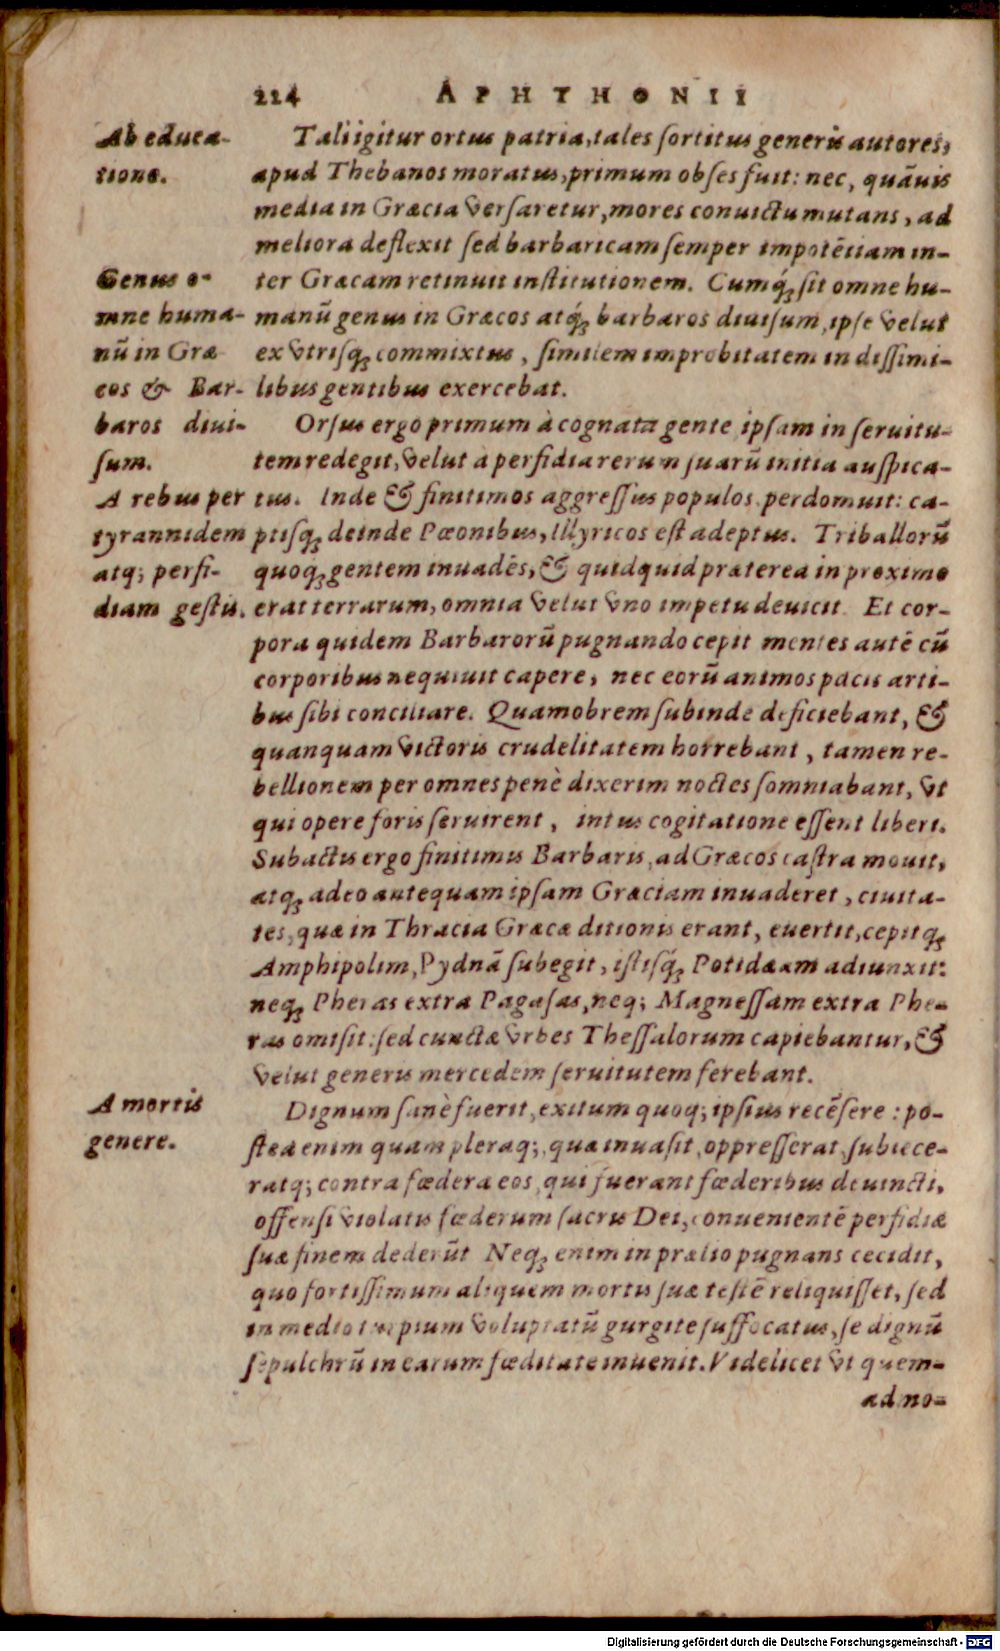 224 APHTHONII
Ab educa-
tione.
Tali igitur ortus patria, tales sortitus generis autores,
apud Thebanos moratus, primum obses fuit: nec, quāuis
media in Græcia versaretur, mores conuictu mutans, ad
meliora deflexit sed barbaricam semper impotētiam in-
ter Græcam retinuit institutionem. Cumq́; sit omne hu-
manū genus in Græcos atq́; barbaros diuisum, ipse velut
ex vtrisq; commixtus, similem improbitatem in dissimi-
libus gentibus exercebat.
Genus o-
mne huma-
nū in Græ
cos & Bar-
baros diui-
sum.
Orsus ergo primum à cognata gente ipsam in seruitu-
tem redegit, velut à perfidia rerum suarū initia auspica-
tus. Inde & finitimos aggressus populos perdomuit: ca-
ptisq; deinde Pæonibus, Illyricos est adeptus. Triballorū
quoq; gentem inuadēs, & quidquid præterea in proximo
erat terrarum, omnia velut vno impetu deuicit. Et cor-
pora quidem Barbarorū pugnando cepit mentes autē cū
corporibus nequiuit capere, nec eorū animos pacis arti-
bus sibi conciliare. Quamobrem subinde deficiebant, &
quanquam victoris crudelitatem horrebant, tamen re-
bellionem per omnes penè dixerim noctes somniabant, vt
qui opere foris seruirent, intus cogitatione essent liberi.
Subactis ergo finitimis Barbaris, ad Græcos castra mouit,
atq; adeo antequam ipsam Græciam inuaderet, ciuita-
tes, quæ in Thracia Græcæ ditionis erant, euertit, cepitq;
Amphipolim, Pydnā subegit, istisq́; Potidæam adiunxit:
neq; Pheras extra Pagasas, neq; Magnessam extra Phe-
ras omisit: sed cunctæ vrbes Thessalorum capiebantur, &
velut generis mercedem seruitutem ferebant.
A rebus per
tyrannidem
atq; perfi-
diam gestis.
A mortis
genere.
Dignum sanè fuerit, exitum quoq; ipsius recēsere: po-
stea enim quam pleraq;, quæ inuasit, oppresserat, subiece-
ratq; contra fœdera eos, qui fuerant fœderibus deuincti,
offensi violatis fœderum sacris Dei, conuenientē perfidiæ
suæ finem dederūt Neq; enim in prælio pugnans cecidit,
quo fortissimum aliquem mortis suæ testē reliquisset, sed
in medio turpium voluptatū gurgite suffocatus, se dignū
sepulchrū in earum fœditate inuenit. Videlicet vt quem-
ad mo-
Digitalisierung gefördert durch die Deutsche Forschungsgemeinschaft - DFG